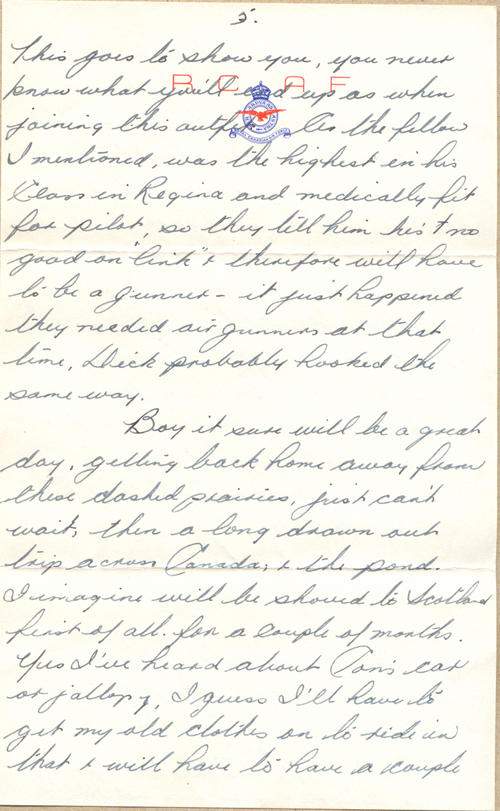 5.
This goes to show you, you never
R C A F
know what you'll end up as when
joining this outfit. As the fellow
I mentioned, was the highest in his
Class in Regina and medically fit
for pilot, so they till him he's no
good on "link" & therefore will have
to be a gunner - it just happened
they needed air gunners at that
time, Dick probably hooked the
same way.
Boy it sure will be a great
day, getting back home away from
these dashed prairies, just can't
wait, then a long drawn out
trip across Canada; & the pond.
I imagine will be shoved to Scotland
first of all. for a couple of months.
Yes I've heard about Con's car
or jallopy, I guess I'll have to
get my old clothes on to ride in
that & will have to have a couple